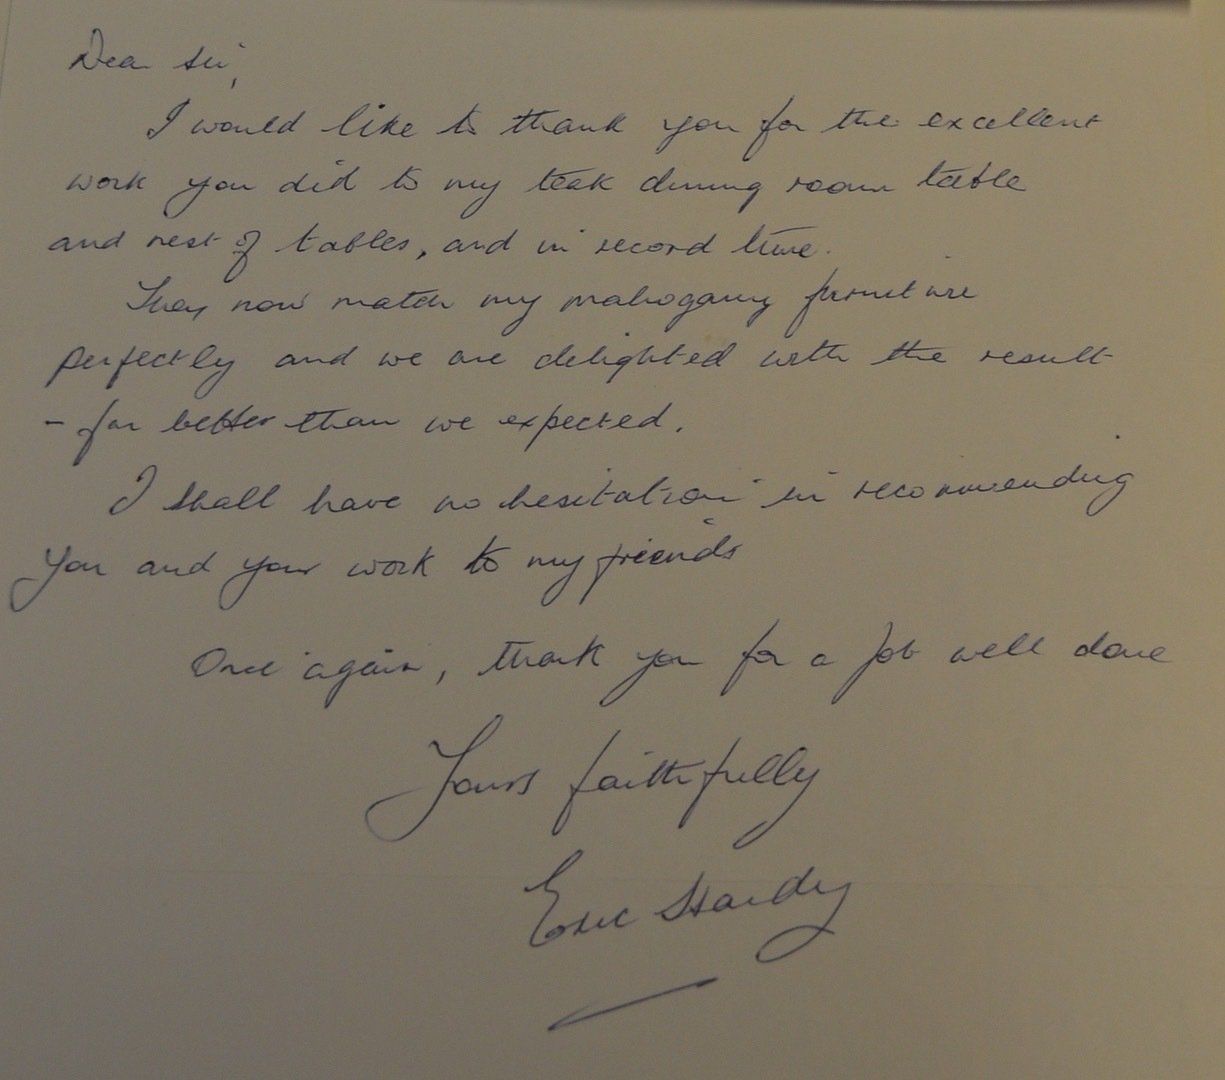 Dear Sir,
I would like to thank you for the excellent
work you did to my teak dinning room table
and nest of tables, and in record time.
They now match my mahogany furniture
perfectly and we are delighted with the result
- far better than we expected.
I shall have no hesitation in recommending
you and your work to my friends
Once again, thank you for a job well done
Yours faithfully
Eric